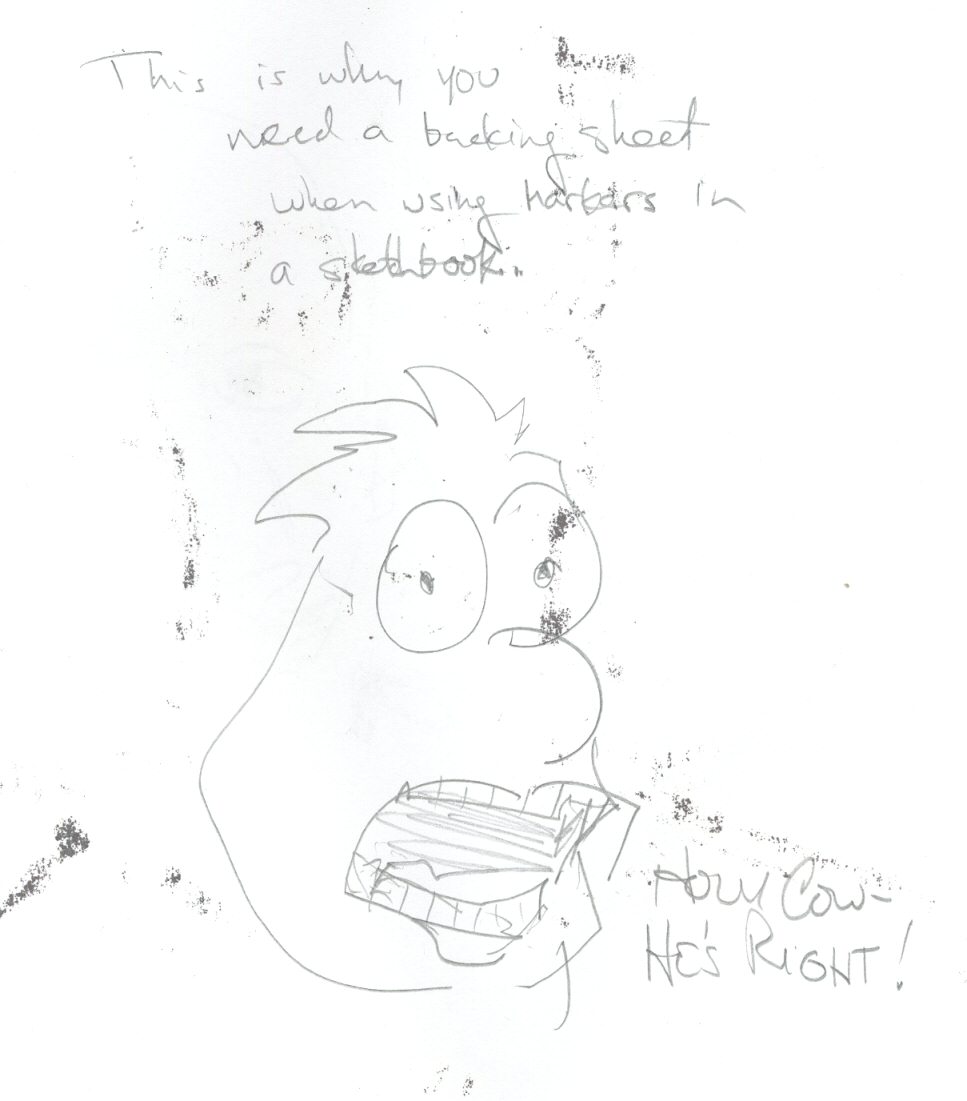 This is why you
need a backing sheet
when using markers in
a sketchbook..
Holy Cow-
He's Right!